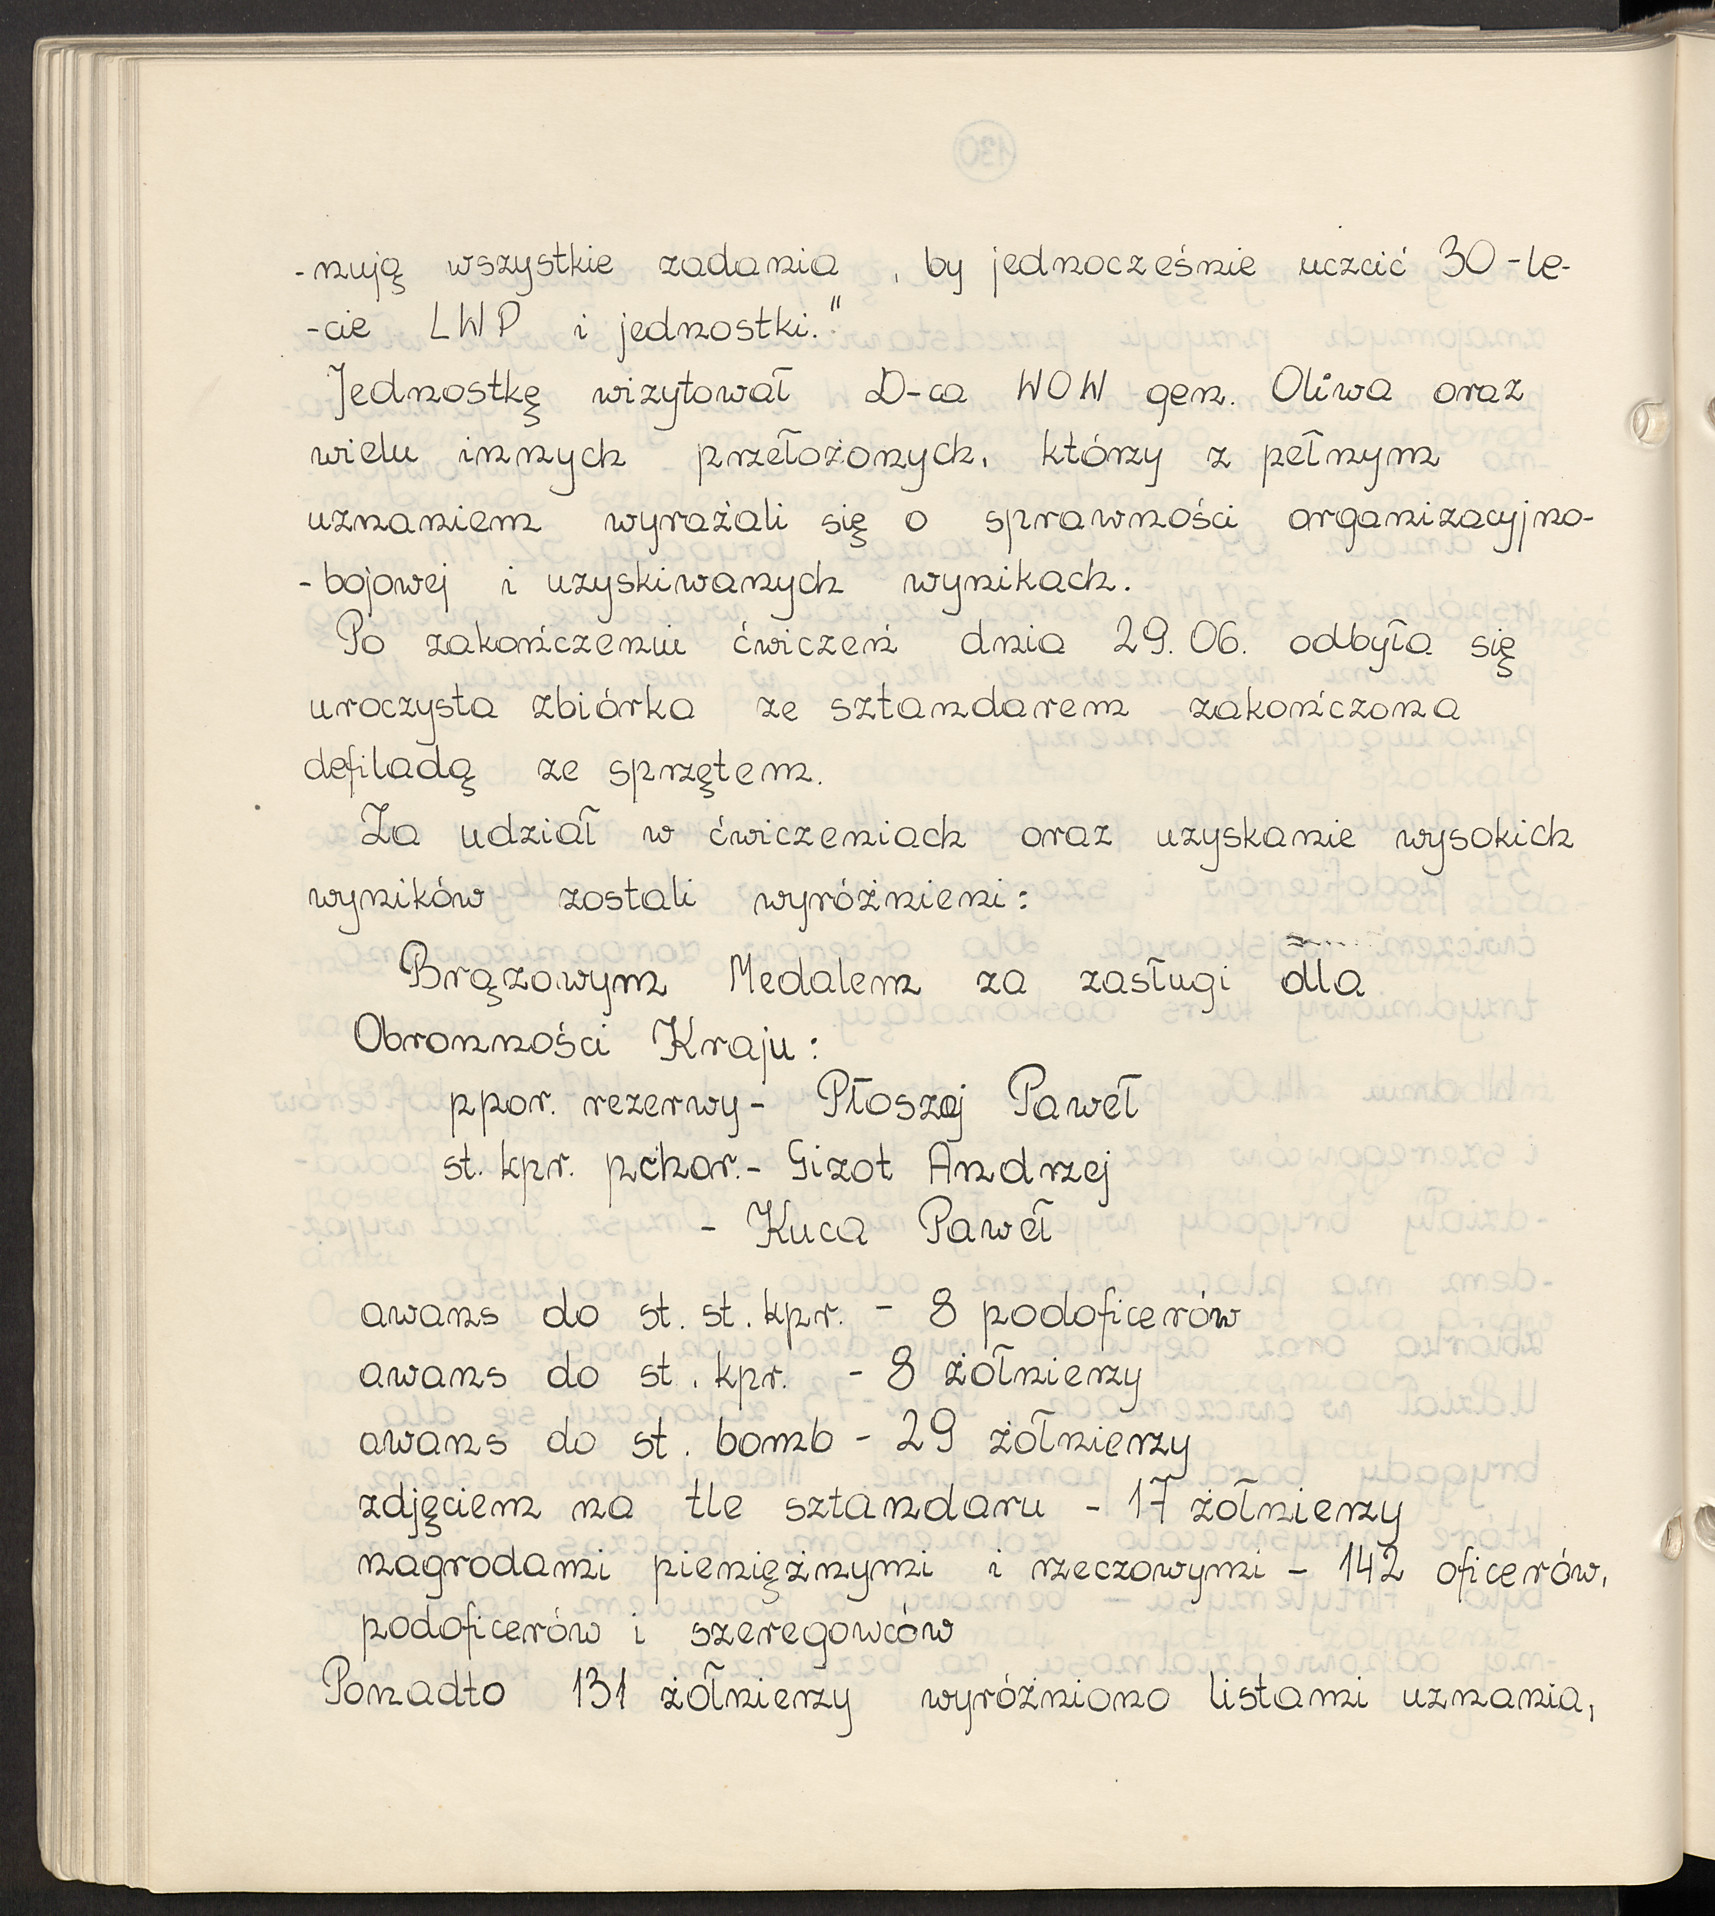 -nują wszystkie zadania , by jednocześnie uczcić 30-le-
-cie LWP i jednostki."
Jednostkę wizytował D-ca WOW gen. Oliwa oraz
wielu innych przełożonych, którzy z pełnym
uznaniem wyrażali się o sprawności organizacyjno-
-bojowej i uzyskiwanych wynikach.
Po zakończeniu ćwiczeń dnia 29.06. odbyła się
uroczysta zbiórka ze sztandarem zakończona
defiladą ze sprzętem.
Za udział w ćwiczeniach oraz uzyskanie wysokich
wyników zostali wyróżnieni:
Brązowym Medalem za zasługi dla
Obronności Kraju:
ppor. rezerwy - Płoszaj Paweł
st. kpr. pchor. - Gizot Andrzej
- Kuca Paweł
awans do st. st. kpr. - 8 podoficerów
awans do st. kpr. - 8 żołnierzy
awans do st. bomb - 29 żołnierzy
zdjęciem na tle sztandaru - 17 żołnierzy
nagrodami pieniężnymi i rzeczowymi - 142 oficerów,
podoficerów i szeregowców
Ponadto 131 żołnierzy wyróżniono listami uznania,